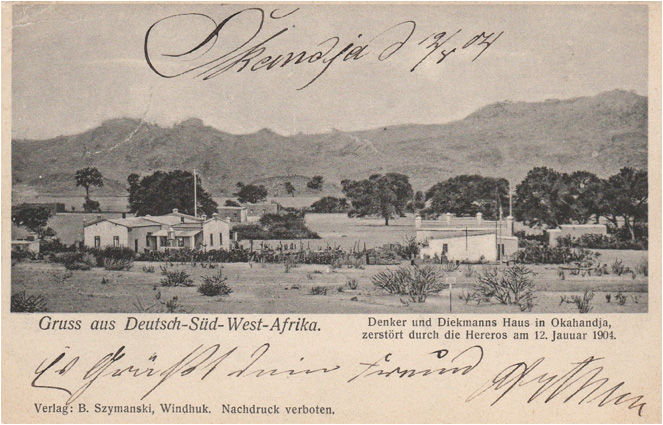 Okahandja 12/4 04
Gruss aus Deutsch-Süd-West-Afrika.
Denker und Diekmanns Haus in Okahandja,
zerstört durch die Hereros am 12. Jauuar 1904.
Es Grüßt Dein Freund
Verlag: B. Szymanski, Windhuk. Nachdruck verboten.